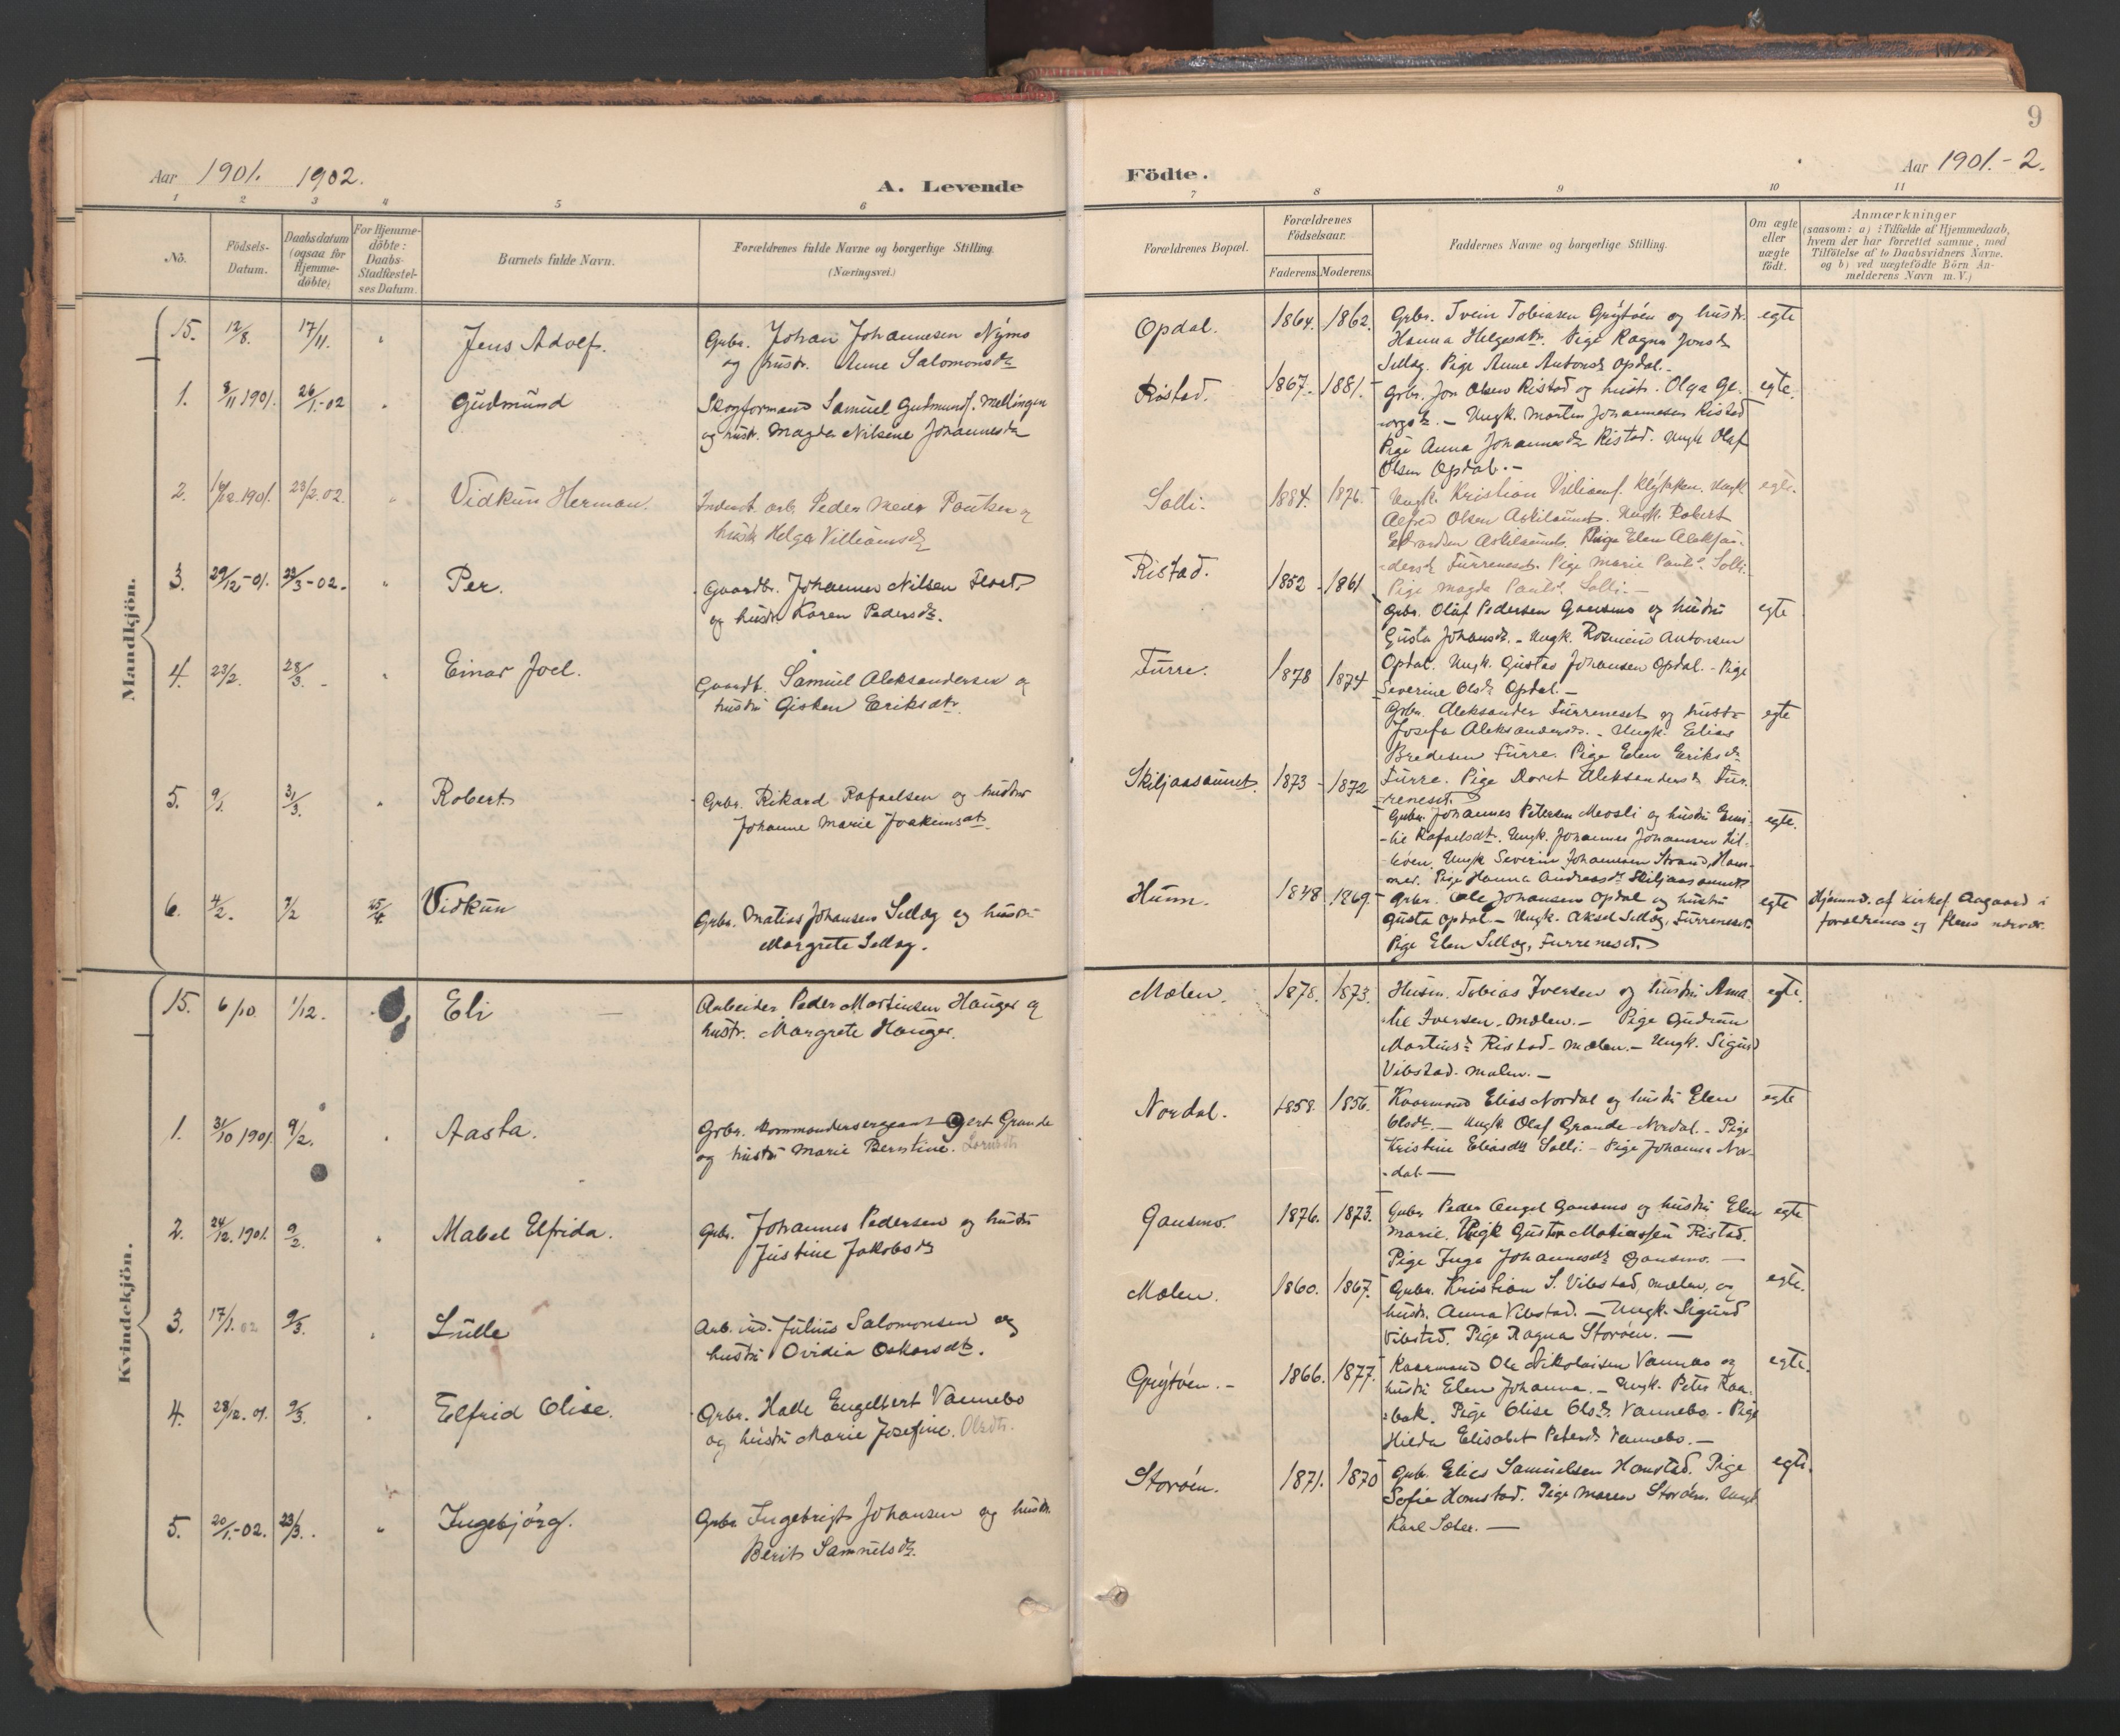 9
Aar 1901. 1902.
A. Levende
Födte.
Aar 1901.-2.
1 2 3 4 5 6 7 8 9 10 11
No.
Födsels-
Datum.
Daabsdatum
(ogsaa for
Hjemme-
döbte)
For Hjemme-
döbte:
Daabs-
Stadfæstel-
ses Datum.
Barnets fulde Navn.
Forældrenes fulde Navne og borgerlige Stilling.
(Næringsvei.)
Forældrenes Bopæl.
Forældrenes
Födselsaar.
Faderens. Moderens.
Faddernes Navne og borgerlige Stilling.
Om ægte
eller
uægte
födt.
Anmærkninger
(saasom: a) i Tilfælde af Hjemmedaab,
hvem der har forrettet samme, med
Tilföielse af to Daabsvidners Navne.
og b) ved uægtefödte Börn An-
melderens Navn m.V.)
Mandkjön.
15. 12/8. 17/11. " Jens Adolf.
Grbr. Johan Johannesen Nýmo
og hustr. Anne Salomonsdtr
Opdal. 1864. 1862.
Grbr. Svein Tobiasen Grýtöen og hustr.
Hanna Helgesdtr. Pige Ragna Jonsdr
Sellæg. Pige Anne Antonsdr Opdal.-
egte
1. 8/11 1901. 26/1-02 " Gudmund
Skogformand Samuel Gudmunds. Mellingen
og hustr. Magda Nilsine Johannesdr
Ristad. 1867. 1881.
Grbr. Jon Olsen Ristad og hustr. Olga Ge-
orgsdr. - Ungk. Martin Johannesen Ristad
Pige Anna Johannesdr Ristad. Ungk Olaf
Olsen Opdal.-
egte.
2. 23/2.02 " Vidkun Herman.
Peder
hustr Helga Villiamsdr
Solli. 1884. 1876.
Ungk. Kristian Villiams. Ungk
Alfred Olsen Ungk. Robert
Pige Elen Aleksan-
dersdr Furreneset. Pige Marie Solli.
Pige Magda Solli.-
egte.
3. 29/12-01. 23/3-02. " Per.
Gaardbr. Johannes Nilsen
og hustr Karen Pedersdr.
Ristad. 1852 - 1861
Grbr. Olaf Pedersen Gansmo og hustru
Gusta Johansdr. - Ungk. Antonsen
Opdal. Ungk. Gustav Johansen Opdal.- Pige
Severine Olsdr Opdal.-
egte
4. 23/2. 28/3. - " Einar Joel.
Gaardb. Samuel Aleksandersen og
hustru Gisken Eriksdtr.
Furre. 1878 1874
Grbr. Aleksander Furreneset og hustr
Josefa Aleksandersdr. - Ungk. Elias
Bredesen Furre. Pige Elen Eriksdr
Furre. Pige Doret Aleksandersdr Fur-
reneset.
egte
5. 9/1. 31/3. " Robert
Grbr. Rikard Rafaelsen og hustru
Johanne Marie Joakimsdtr.
Skiljaasaunet. 1873 - 1872
Grbr. Johannes Petersen Meosli og hustru Emi-
lie Rafaelsdtr. Ungk. Johannes Johansen
Ungk Severin Johannesen Strand, Ham-
mer. Pige Hanna Andreasdr Skiljaasaunet
egte.
6. 4/2. 7/2 25/4 Vidkun
Grbr. Matias Johansen Sellæg og hustru
Margrete Sellæg.
Hunn. 1848 1869.
Grbr. Ole Johansen Opdal og hustru
Gusta Opdal.- Ungk. Aksel Sellæg, Furreneset.
Pige Elen Sellæg, Furreneset.
egte
Hjemmd. af kirkes. Aagaard i
forældrenes og fleres nærvær.
Kvindekjön.
15. 6/10. 1/12. Eli
Arbeider Peder Martinsen Hauger og
hustr. Margrete Hauger.
Mælen. 1878. 1873.
Husm. Tobias Iversen og hustru Ama-
lie Iversen, Mælen.- Pige Gudrun
Martinsdr Ristad-Mælen.- Ungk. Sigurd
Vibstad. Mælen.-
egte.
1. 31/10 1901. 9/2. " Aasta.
Grbr. Kommandersergeant Gert Grande
og hustru Marie Berntine.
Nordal. 1858. 1856.
Kaarmand Elias Nordal og hustru Elen
Olsdtr.- Ungk Olaf Grande-Nordal.- Pige
Kristine Eliasdtr Solli.- Pige Johanna Nor-
dal.-
egte
2. 24/12.1901. 9/2. " Mabel Elfrida.
Grbr. Johannes Pedersen og hustru
Justine Jakobsdr
Gansmo. 1876. 1873.
Grbr Peder Angel Gansmo og hustru Elen
Marie. Ungk Gustav Matiassen Ristad.
Pige Inga Johannesdr Gansmo.-
egte
3. 17/1.02 9/3. " Lulle
Arb. ind. Julius Salomonsen og
hustru Ovidia Oskarsdtr.
Mælen. 1860. 1867.
Grbr. Kristian S. Vibstad, Mælen, og
hustr. Anna Vibstad.- Ungk. Sigurd
Vibstad. Pige Ragna Storöen.-
egte.
4. 28/12.01. 9/3. " Elfrid Olise.
Grbr. Halle Engelbert Vannebo
og hustru Marie Josefine. Olsdtr.
Grýtöen.- 1866. 1877.
Kaarmand Ole Nikolaisen Vannebo og
hustru Elen Johanna.- Ungk. Peter Kaa-
bak. Pige Olise Olsdr. Vannebo.- Pige
Hilda Elisabet Petersdr Vannebo.-
egte.
5. 20/1.-02. 23/3. " Ingebjörg.
Grbr Ingebrigt Johansen og hustr.
Berit Samuelsdr.
Storöen. 1871. 1870
Grbr. Elias Samuelsen Homstad. Pige
Sofie Homstad. Pige Maren Storöen. Ungk
Karl Sæter.-
egte.